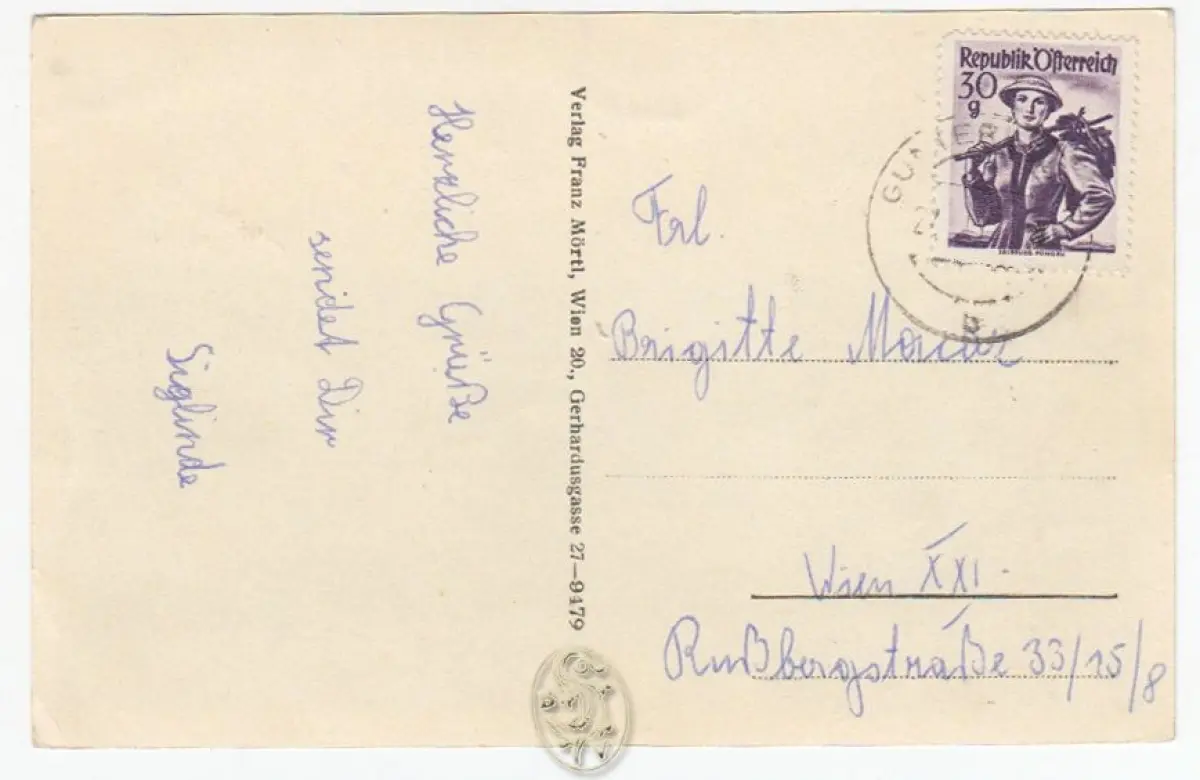 Herzliche Grüße
sendet Dir
Siglinde
Verlag Franz Mörtl, Wien 20., Gerhardusgasse 27—9479
Republik Österreich
30
g
SALZBURG, PONGAU
Frl.
Brigitte
Wien XXI.
Rußbergstraße 33/15/8